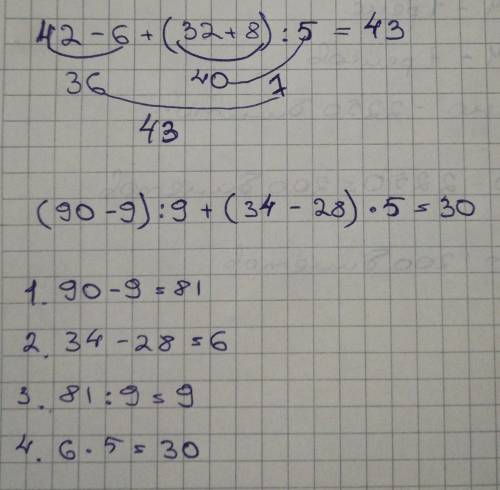 42 - 6 + (32 + 8) : 5 = 43
36 40 7
43
(90 - 9) : 9 + (34 - 28) · 5 = 30
1. 90 - 9 = 81
2. 34 - 28 = 6
3. 81 : 9 = 9
4. 6 · 5 = 30